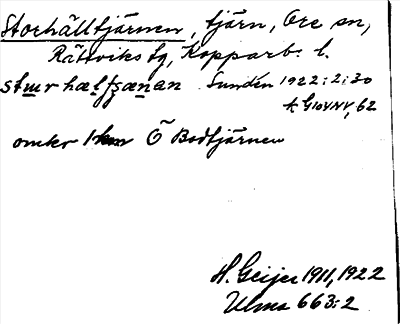 Storhälltjärnen, tjärn, Ore sn,
Rättviks tg, Kopparb. l.
Sunden 1922:2:30
62
omkr 1 km Ö Bodtjärnen
H. Geijer 1911, 1922
Ulma 663:2